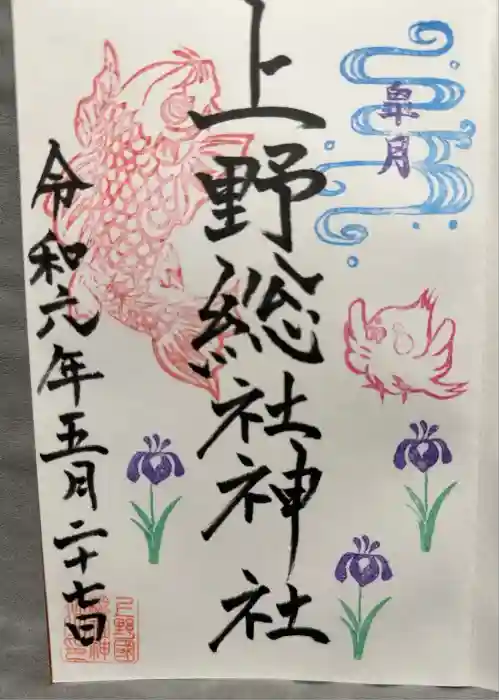 皐月
上野総社神社
令和六年五月二十七日